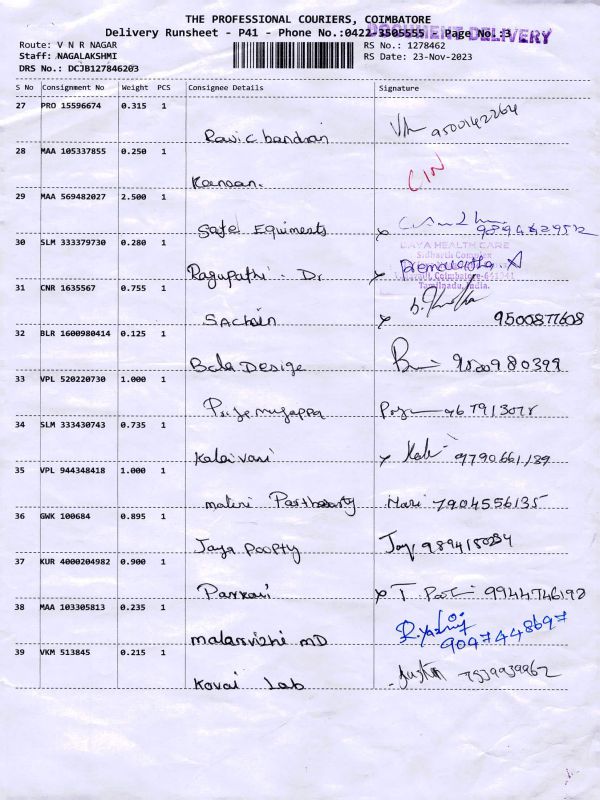 THE PROFESSIONAL COURIERS, COIMBATORE
DOCUMENT DELIVERY
Delivery Runsheet - P41 - Phone No.:0422-3505555 - Page No.:3
Route: V N R NAGAR
Staff: NAGALAKSHMI
DRS No.: DCJB127846203
RS No.: 1278462
RS Date: 23-Nov-2023
S No Consignment No Weight PCS Consignee Details Signature
27 PRO 15596674 0.315 1
Ravi c bandran 9500142264
28 MAA 105337855 0.250 1
Kannan. CIN
29 MAA 569482027 2.500 1
Safe Equiments
30 SLM 333379730 0.280 1
DAYA HEALTH CARE
Sidharth Complex
Coimbatore-641041
Tamilnadu, India.
Ragupathi. Dr x Premalatha.A
31 CNR 1635567 0.755 1
Sachin x 9500877608
32 BLR 1600980414 0.125 1
Bala Desige
33 VPL 520220730 1.000 1
34 SLM 333430743 0.735 1
Kalaivani x Kalai 9790661139
35 VPL 944348418 1.000 1
malini Parthasarty 7904556135
36 GWK 100684 0.895 1
Jaya Poopty Jay 9894150234
37 KUR 4000204982 0.900 1
x 9944746198
38 MAA 103305813 0.235 1
malarvizhi MD 9047448697
39 VKM 513845 0.215 1
Kovai Lab